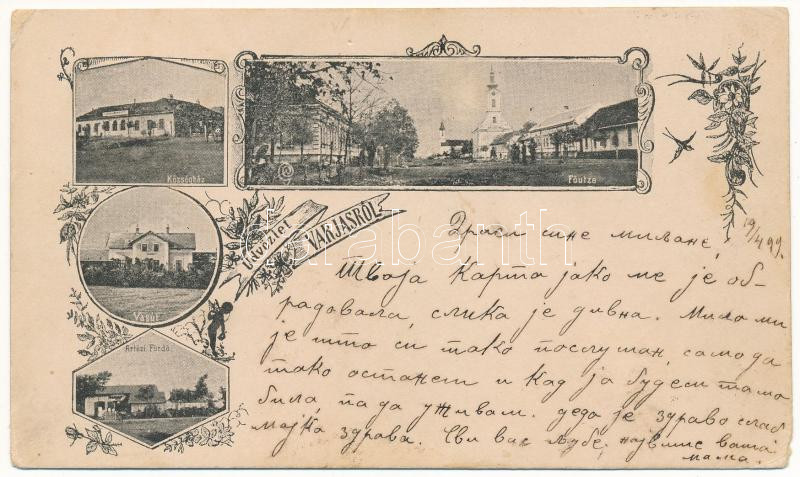 Községház
Főutza
Vasút
Artézi Fürdő
Üdvözlet
VARJASRÓL
darabanth
19/4 99.
Драги сине Милане,
Твоја карта јако ме је об-
радовала, слика је дивна. Мило ми
је што си тако послушан, само да
тако останеш и кад ја будем тамо
била, па да уживам. деда је здраво слаб
мајка здрава. Сви вас љубе, највише ваша
мама.